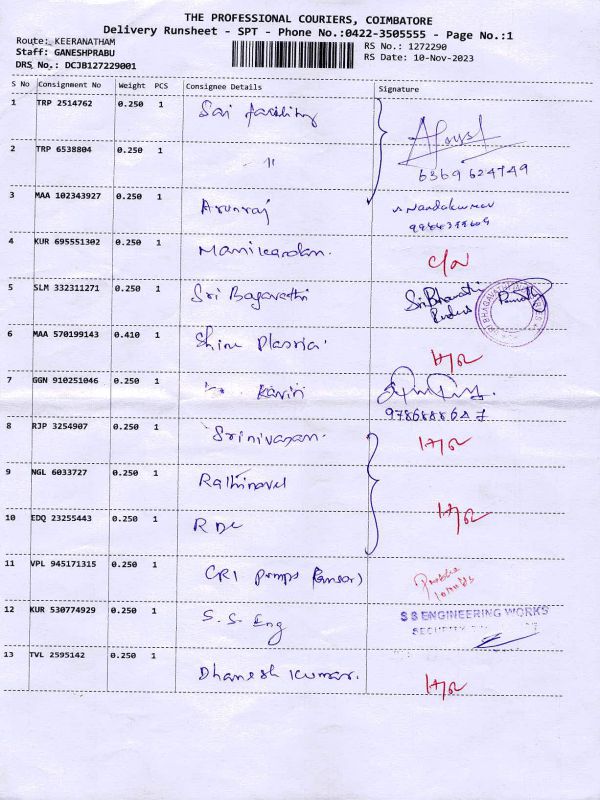 THE PROFESSIONAL COURIERS, COIMBATORE
Delivery Runsheet - SPT - Phone No.:0422-3505555 - Page No.:1
Route: KEERANATHAM
RS No.: 1272290
Staff: GANESHPRABU
RS Date: 10-Nov-2023
DRS No.: DCJB127229001
S No Consignment No Weight PCS Consignee Details Signature
1 TRP 2514762 0.250 1 Sai
2 TRP 6538804 0.250 1 "
6369624749
3 MAA 102343927 0.250 1 Arunraj Nandakumar
4 KUR 695551302 0.250 1 Manikandan.
5 SLM 332311271 0.250 1 Sri Bagavathi Sri Bharathi
6 MAA 570199143 0.410 1 Shine
7 GGN 910251046 0.250 1 Kaviri
8 RJP 3254907 0.250 1 Srinivasan.
9 NGL 6033727 0.250 1 Rathinavel
10 EDQ 23255443 0.250 1
11 VPL 945171315 0.250 1 CRI Pumps
12 KUR 530774929 0.250 1 S.S. Eng S S ENGINEERING WORKS
13 TVL 2595142 0.250 1 Dhanesh Kumar.